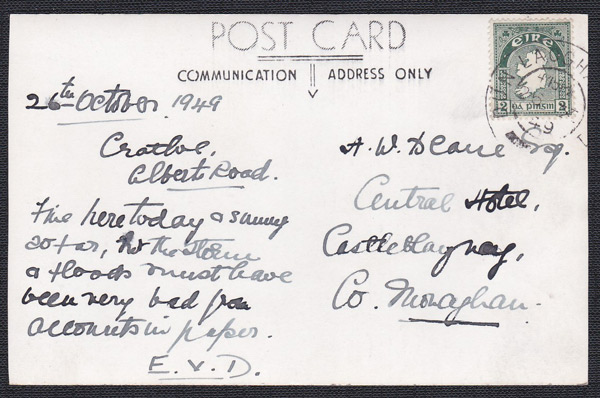 POST CARD
COMMUNICATION ADDRESS ONLY
EIRE
2 2
26th October 1949
Albert Road.
Fine here today & sunny
so far, but the storm
& floods must have
been very bad from
accounts in paper.
E. V. D.
A. W. Deane Esq.
Central Hotel,
Castleblayney,
Co. Monaghan.